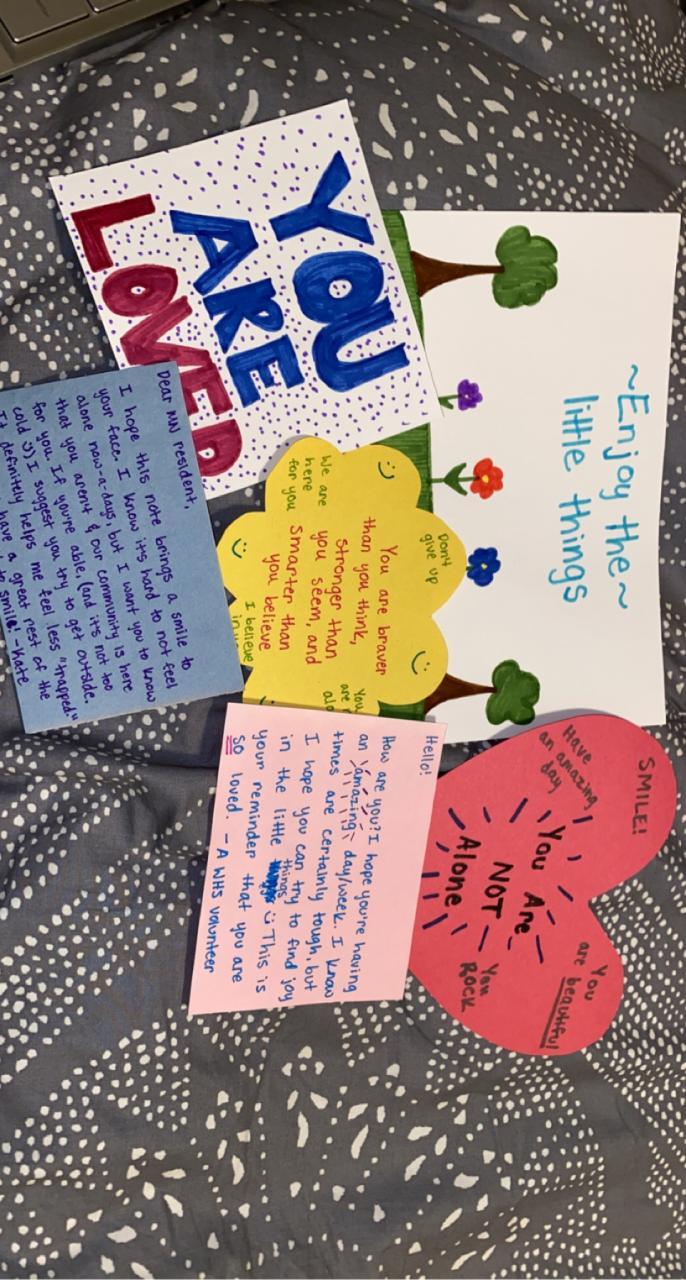 ~Enjoy the~
little things
YOU
ARE
LOVED
Don't
give up
We are
here
for you
You are braver
than you think,
stronger than
you seem, and
smarter than
you believe
I believe
in
You
are
SMILE!
Have
an amazing
day
You Are
NOT
Alone
You
are beautiful
You
Rock
Dear NN resident,
I hope this note brings a smile to
your face. I know it's hard to not feel
alone now-a-days, but I want you to know
that you aren't & our community is here
for you. If you're able, (and it's not too
cold :)) I suggest you try to get outside.
It definitely helps me feel less "trapped."
have a great rest of the
to smile! -Kate
Hello!
How are you? I hope you're having
an amazing day/week. I know
times are certainly tough, but
I hope you can try to find joy
in the little things :) This is
your reminder that you are
so loved. - A WHS volunteer